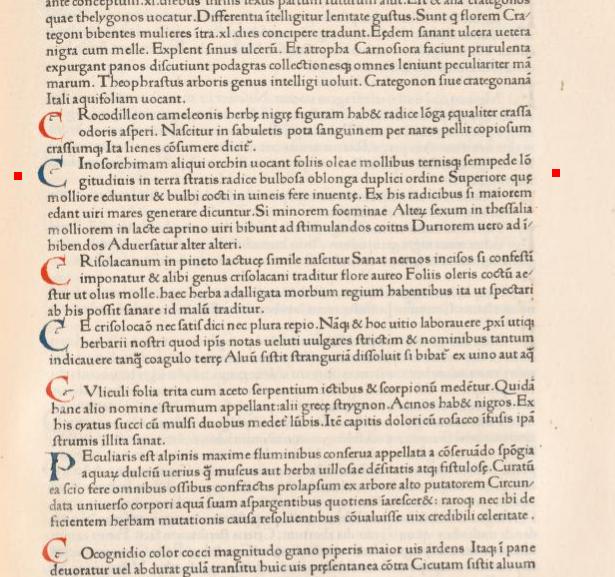 ante conceptum.xl.diebus ... sexus partum futurum aiūt. Et & alia crategonos
quae thelygonos uocatur. Differentia ītelligitur lenitate gustus. Sunt q̄ florem Cra/
tegoni bibentes mulieres ītra.xl.dies concipere tradunt. Eędem sanant ulcera uetera
nigra cum melle. Explent sinus ulcerū. Et atropha Carnosiora faciunt prurulenta
expurgant panos discutiunt podagras collectionesq; omnes leniunt peculiariter mā
marum. Theophrastus arboris genus intelligi uoluit. Crategonon siue crategonanā
Itali aquifoliam uocant.
C Rocodilleon cameleonis herbę nigrę figuram hab& radice lōga ęqualiter crassa
odoris asperi. Nascitur in sabuletis pota sanguinem per nares pellit copiosum
crassumq; Ita lienes cōsumere dicit᷑.
C Inosorchimam aliqui orchin uocant foliis oleae mollibus ternisq; semipede lō
gitudinis in terra stratis radice bulbosa oblonga duplici ordine Superiore quę
molliore eduntur & bulbi cocti in uineis fere inuentę. Ex his radicibus si maiorem
edant uiri mares generare dicuntur. Si minorem foeminae Alteȝ sexum in thessalia
molliorem in lacte caprino uiri bibunt ad stimulandos coitus Duriorem uero ad ī/
bibendos Aduersatur alter alteri.
C Risolacanum in pineto lactucę simile nascitur Sanat neruos incisos si confestī
imponatur & alibi genus crisolacani traditur flore aureo Foliis oleris coctū ae/
stur ut olus molle. haec herba adalligata morbum regium habentibus ita ut spectari
ab his possit sanare id malū traditur.
C E crisolocaō nec satis dici nec plura repio. Nāq; & hoc uitio laborauere ꝓxi utiq;
herbarii nostri quod ipīs notas ueluti uulgares strictim & nominibus tantum
indicauere tanq̄ coagulo terrę Aluū sistit stranguriā dissoluit si bibat᷑ ex uino aut aq̄
C Vliculi folia trita cum aceto serpentium ictibus & scorpionū medētur. Quidā
hanc alio nomine strumum appellant: alii gręcę strygnon. Acinos hab& nigros. Ex
his cyatus succi cū mulsi duobus medet᷑ lūbis. Itē capitis dolori cū rosaceo ītusis ipā
strumis illita sanat.
P Eculiaris est alpinis maxime fluminibus conserua appellata a cōseruādo spōgia
aquaȝ dulciū uerius q̄ muscus aut herba uillosae dēsitatis atq; fistulosę. Curatū
ea scio fere omnibus ossibus confractis prolapsum ex arbore alto putatorem Circun/
data uniuerso corpori aquā suam aspargentibus quotiens īarescer&: raroq; nec ibi de
ficientem herbam mutationis causa resoluentibus cōualuisse uix credibili celeritate.
C Ocognidio color cocci magnitudo grano piperis maior uis ardens Itaq; ī pane
deuoratur uel abdurat gulā transitu huic uis pręsentanea cōtra Cicutam sistit aluum